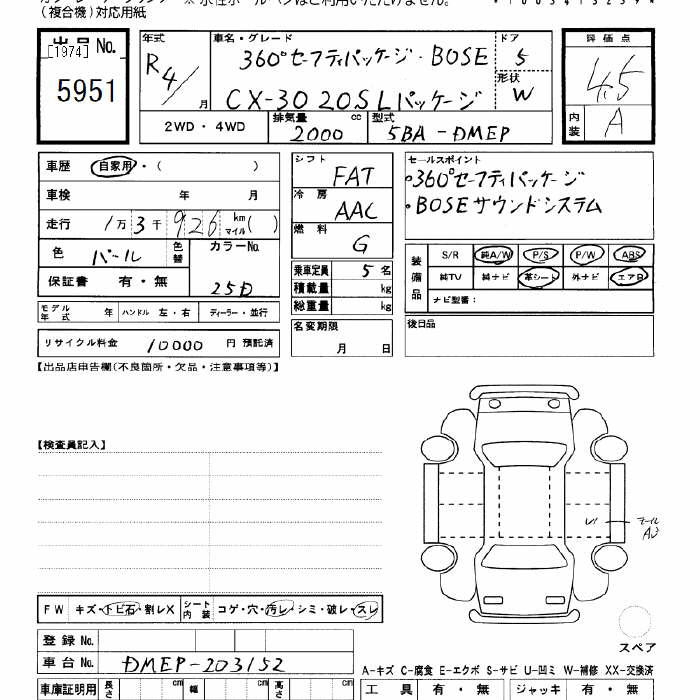 (複合機)対応用紙
出品No. [1974]
5951
年式 R4/ 月
車名・グレード 360°セーフティパッケージ・BOSE
CX-30 20S Lパッケージ
ドア 5
形状 W
評価点 4.5
内装 A
2WD・4WD
排気量 2000 cc
型式 5BA-DMEP
車歴 自家用・( )
車検 年 月
走行 1万3千926 km マイル( )
色 パール 色替
カラーNo. 25D
保証書 有・無
モデル年式 年 ハンドル 左・右 ディーラー・並行
リサイクル料金 10000 円 預託済
シフト FAT
冷房 AAC
燃料 G
乗車定員 5 名
積載量 kg
総重量 kg
名変期限
月 日
セールスポイント
・360°セーフティパッケージ
・BOSEサウンドシステム
装備品 S/R 純A/W P/S P/W ABS
純TV 純ナビ 革シート 外ナビ エアB
ナビ型番:
後日品
【出品店申告欄(不良箇所・欠品・注意事項等)】
【検査員記入】
A3
FW キズ・トビ石・割レX シート内装 コゲ・穴・汚レ・シミ・破レ・スレ
スペア
登録No.
車台No. DMEP-203152
A-キズ C-腐食 E-エクボ S-サビ U-凹ミ W-補修 XX-交換済
車庫証明用 長さ cm 幅 cm 高さ cm
工具 有・無 ジャッキ 有・無